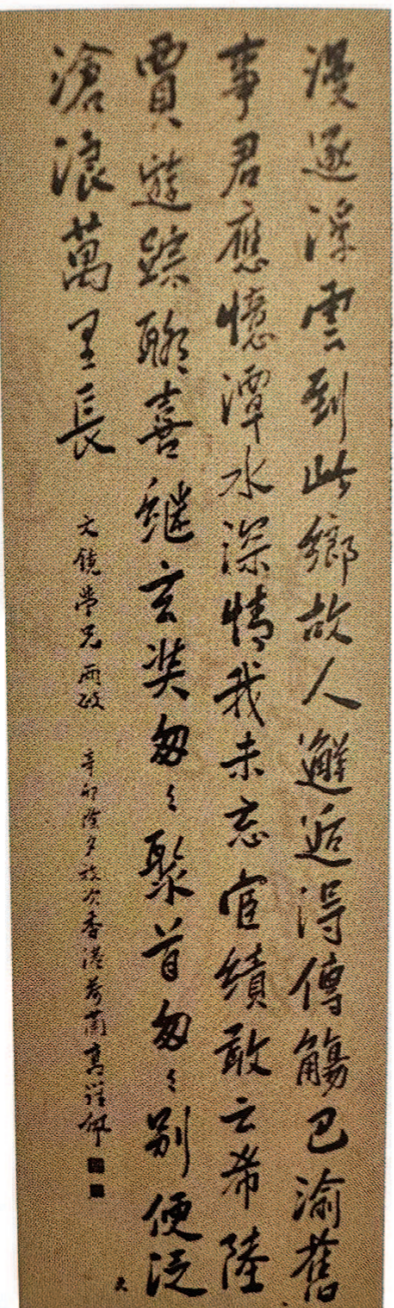 漫逐浮雲到此鄉故人邂逅得傳觴巴渝舊
事君應憶潭水深情我未忘宦績敢云希陸
賈遊踪聊喜繼玄奘匆〻聚首匆〻別便泛
滄浪萬里長
文鏡學兄兩政
辛卯除夕旅次香港荷蘭高羅佩